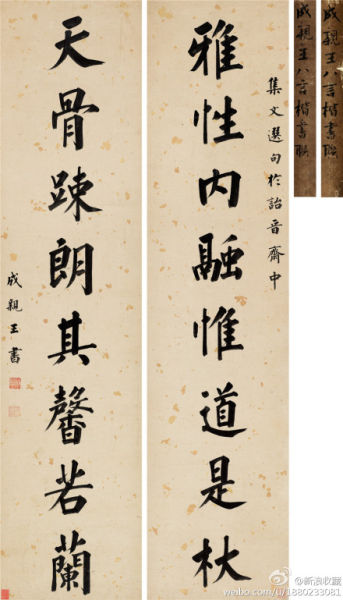 成親王八言楷書聯
成親王八言楷書聯
集文選句於詒晉齋中
雅性内融惟道是杖
天骨踈朗其馨若蘭
成親王書
@新浪收藏
weibo.com/u/1880233081